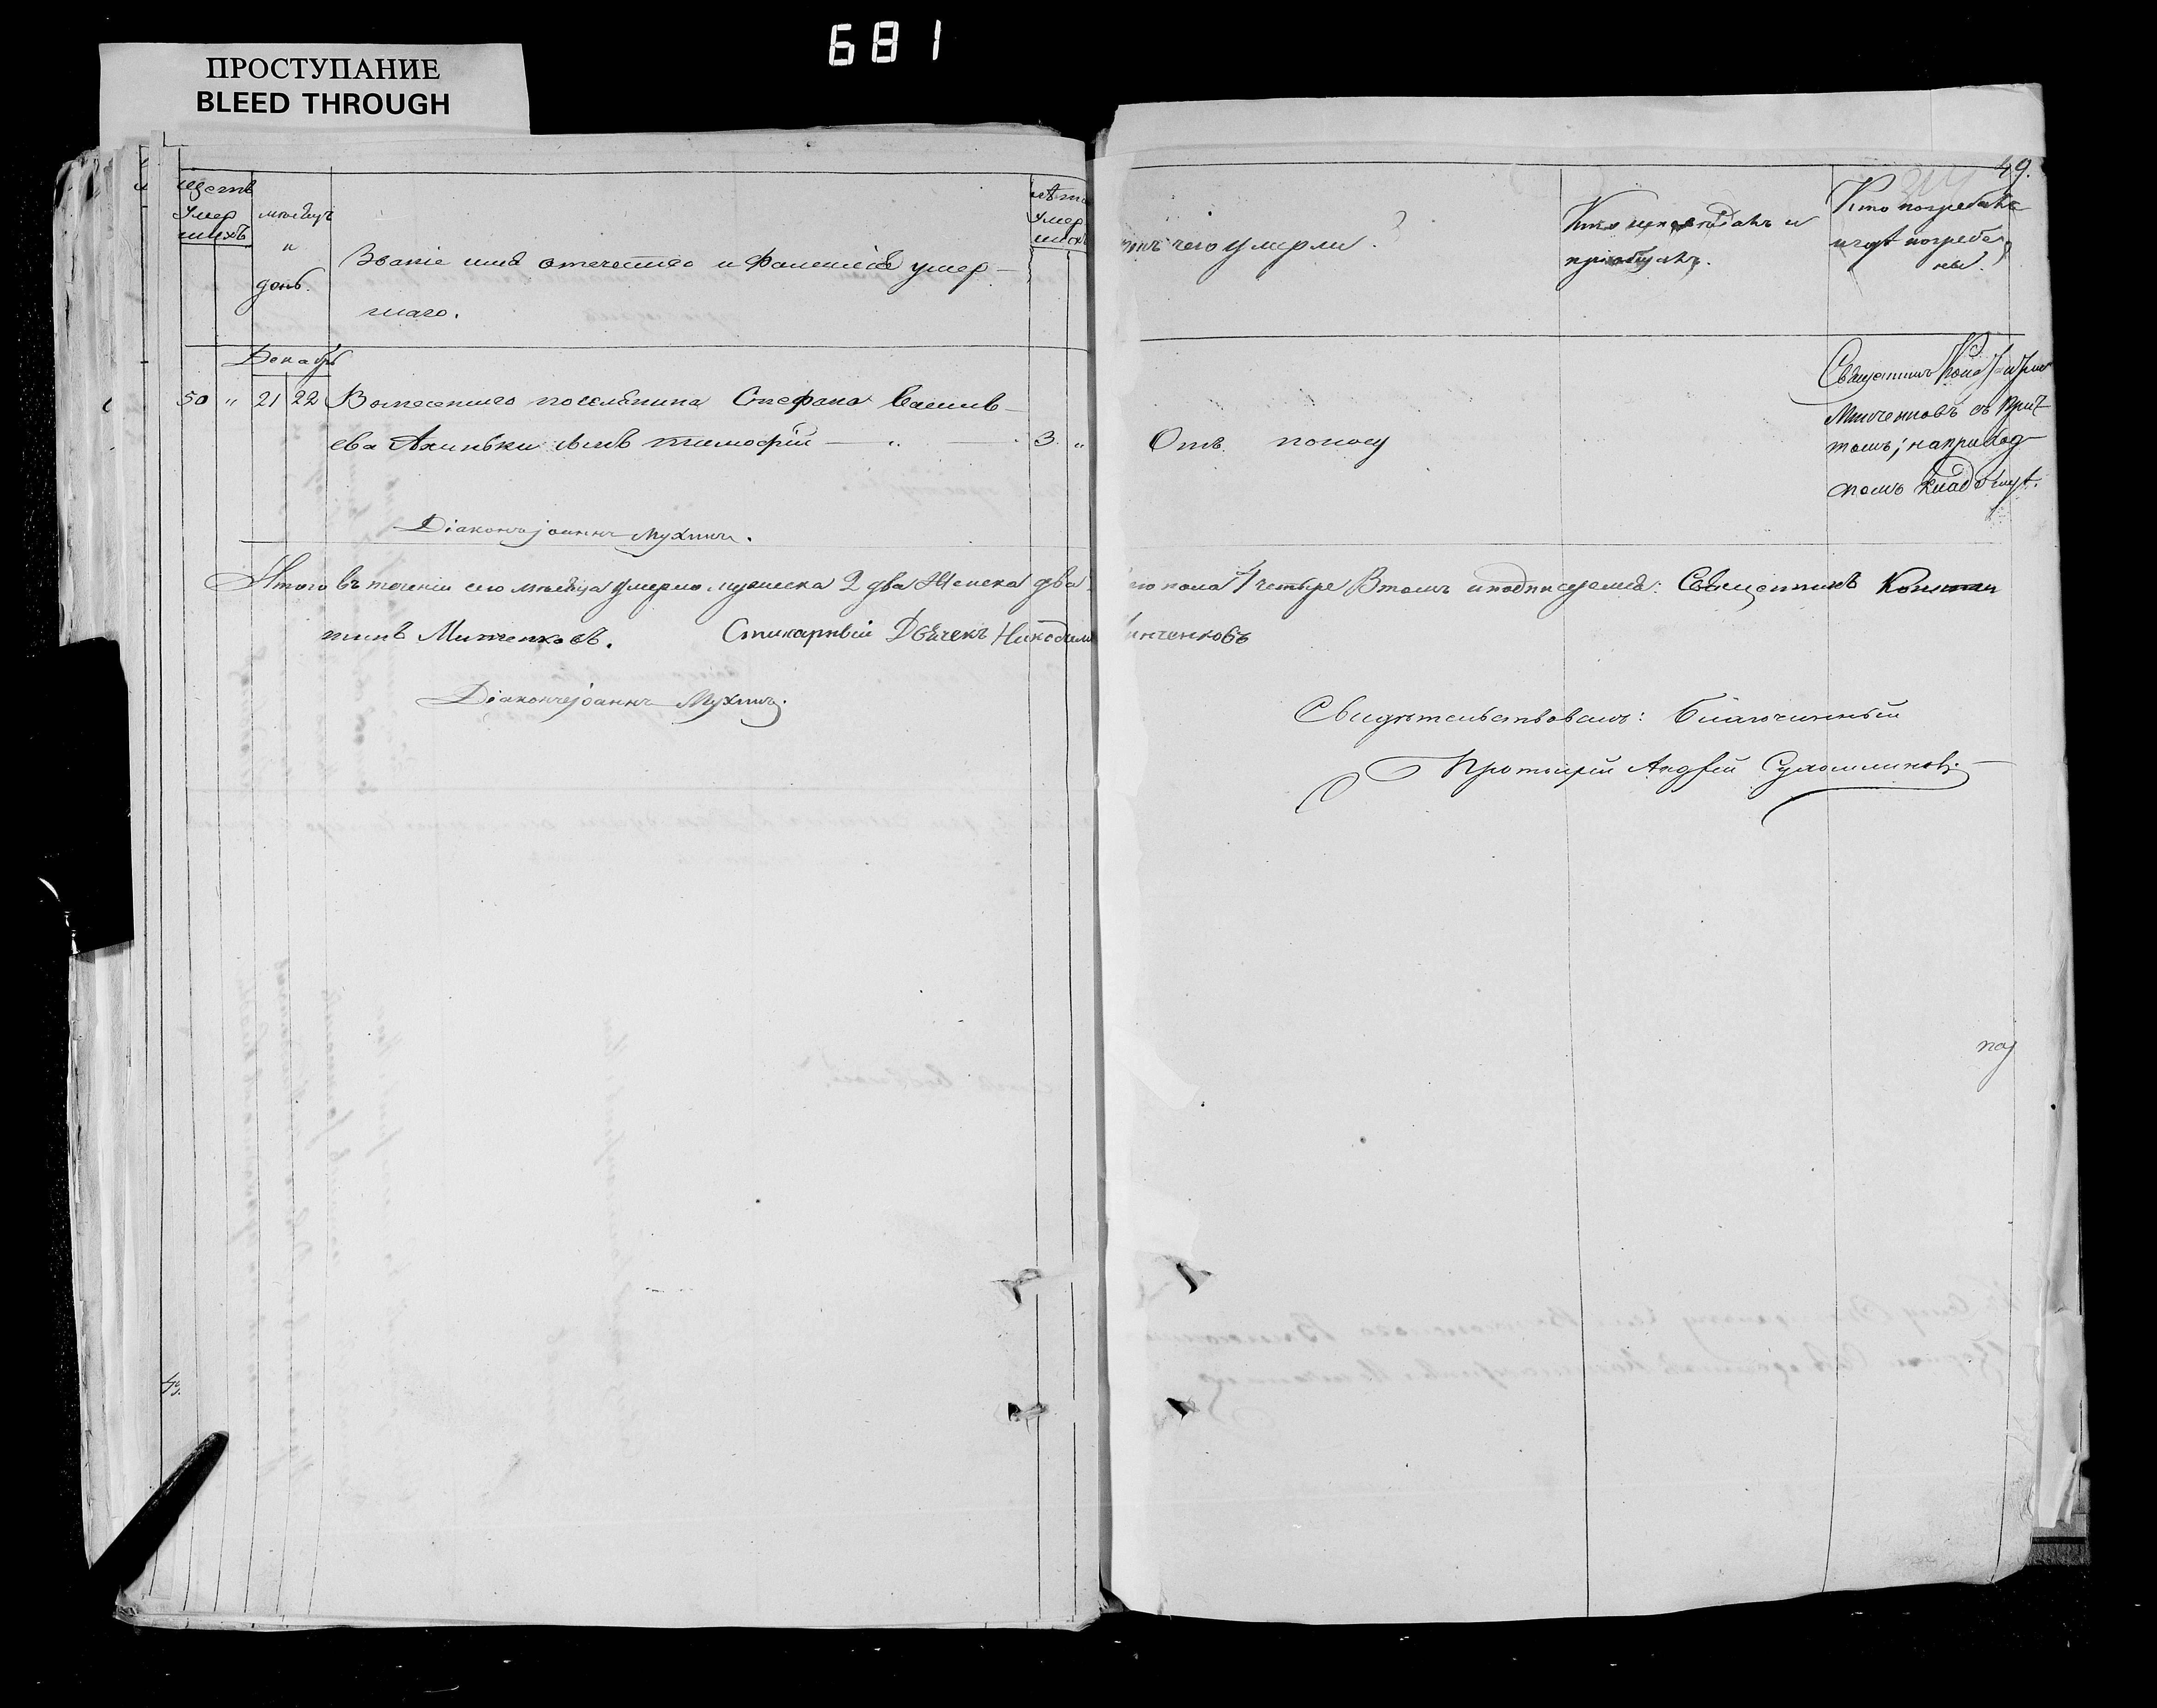 681
ПРОСТУПАНИЕ
BLEED THROUGH
49.
Умер
шихъ
мѣсяцъ
и
день.
Званіе имя отечество и фамилія умер-
шаго.
лѣта
Умер
шихъ
отъ чего умерли.
Кто исповѣдалъ и
пріобщалъ.
Кто погребалъ
и гдѣ погребе
ны.
Декабрь
50 " 21 22 Военнаго поселянина Стефана
ева сынъ тимофій — " — 3. "
Отъ поносу
Священникъ
Минченковъ съ прич-
томъ; на приход-
скомъ кладбищѣ.
Діаконъ Іоаннъ Мухинъ.
Итого въ теченіи сего мѣсяца умерло мужеска 2 два Женска два
его пола 4 четыре Втомъ иподписуемся: Священникъ Констан
тинъ Минченковъ. Стихарный Дьячекъ Никодимъ
инченковъ
Діаконъ Іоаннъ Мухинъ.
Свидѣтельствовалъ: благочинный
Протоіерей Андрей Сухомлиновъ.